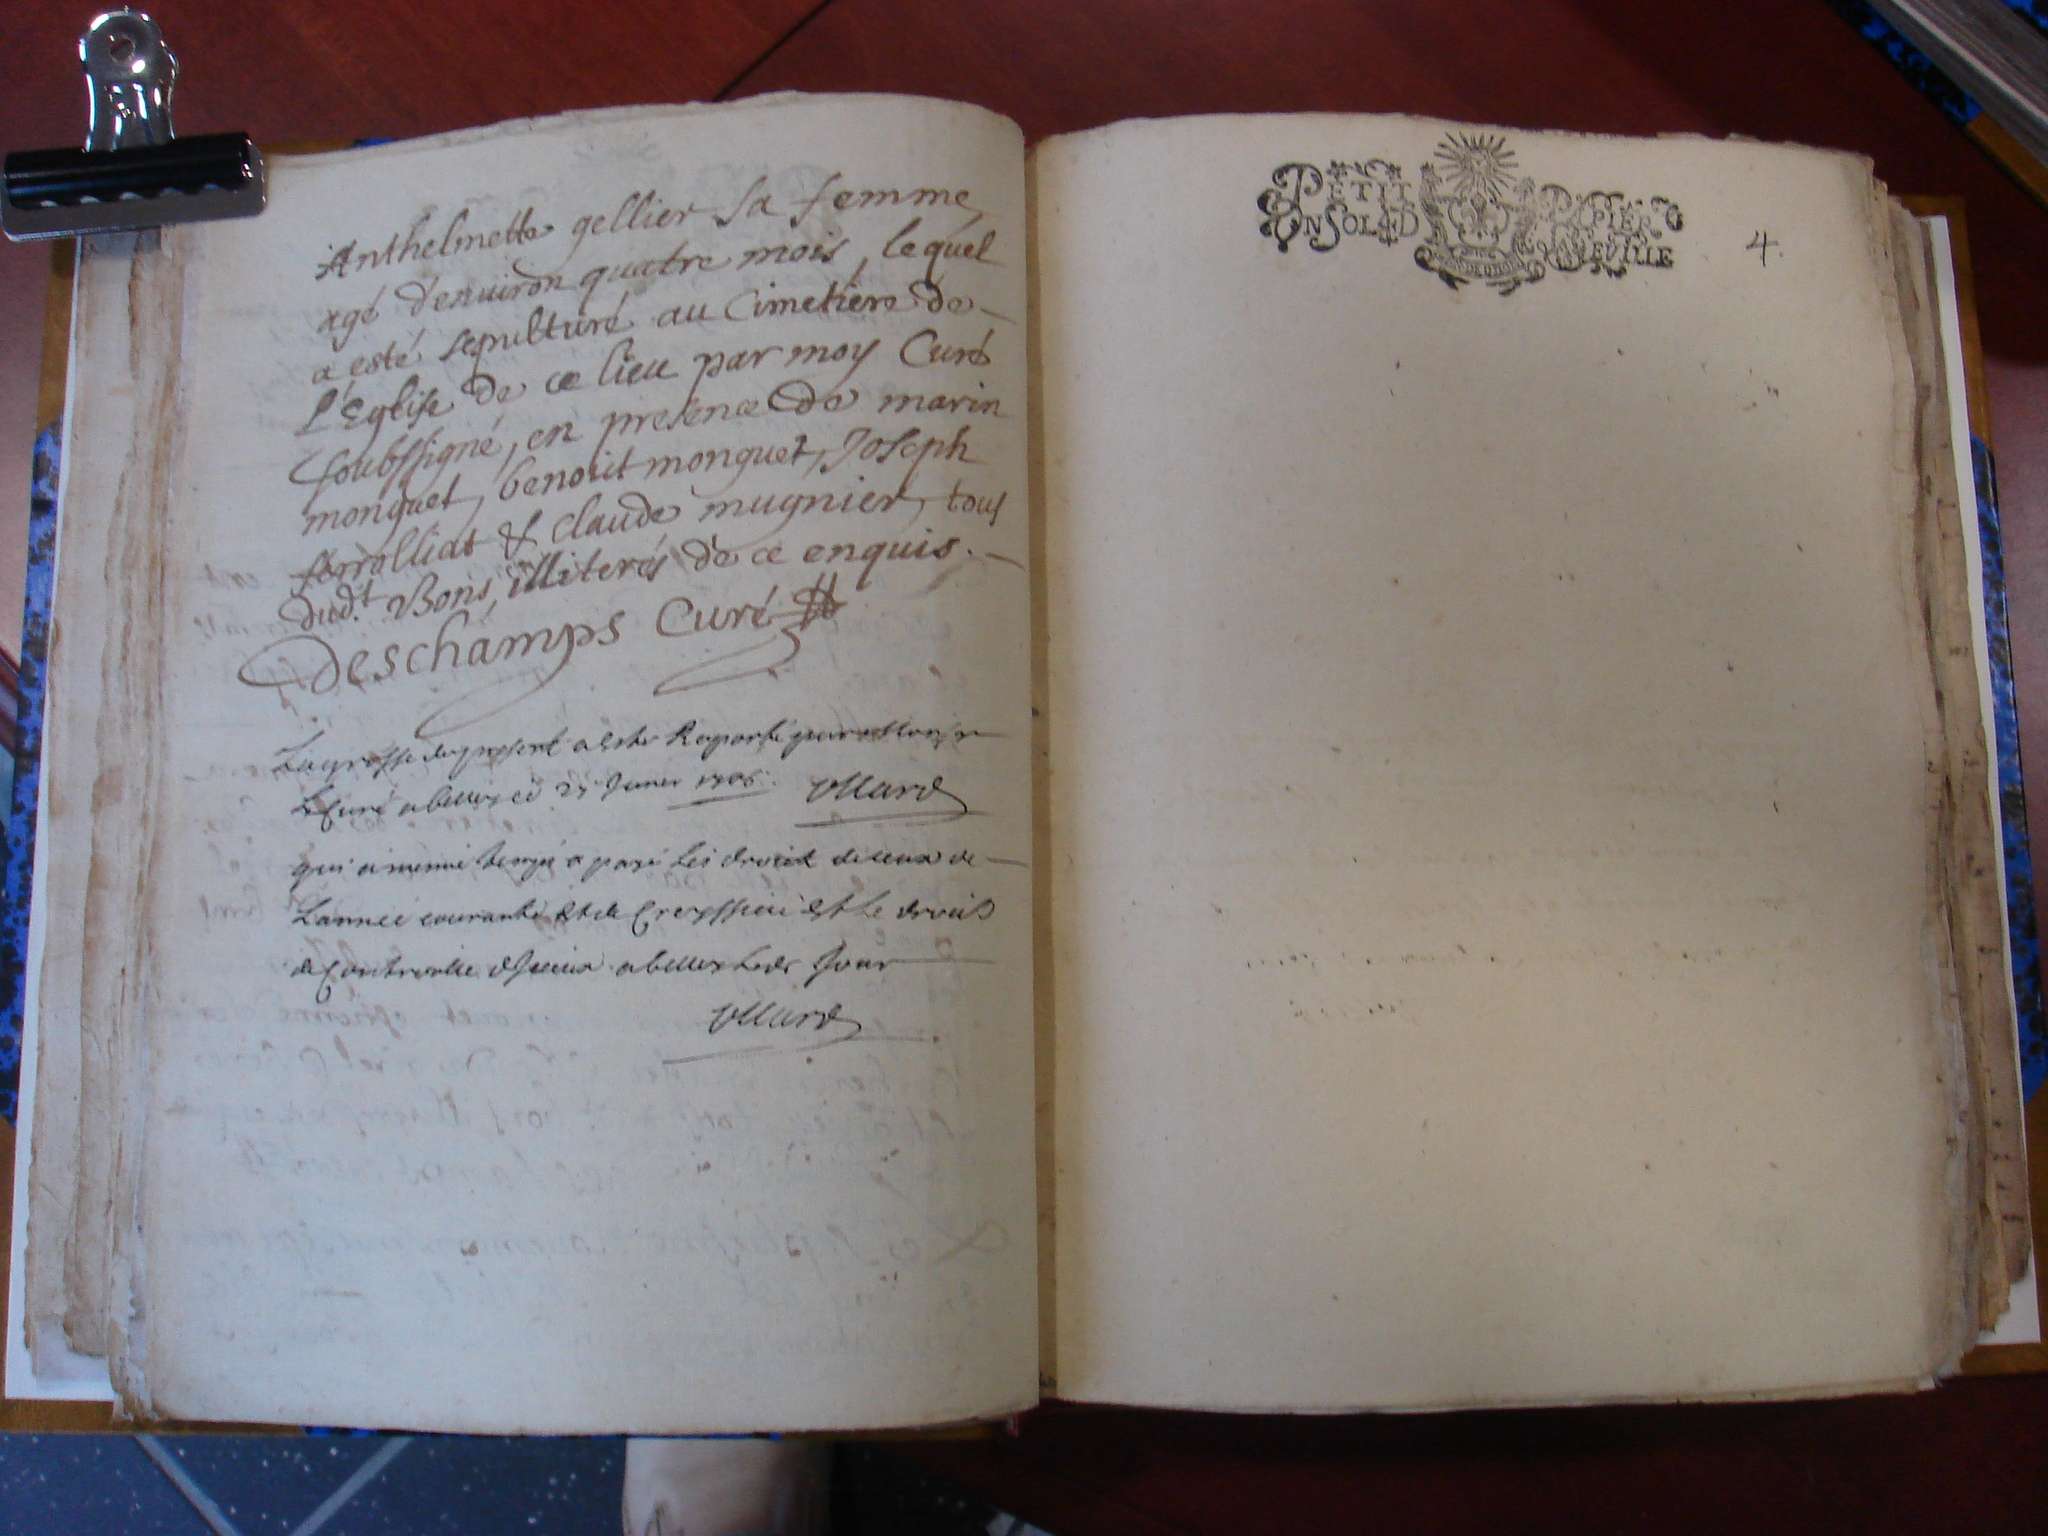 Anthelmette gellier sa femme,
agé d'enuiron quatre mois, lequel
a esté sepulturé au Cimetiere de
l'Eglise de ce lieu par moy Curé
soubssigné, en presence de marin
monguet, benoit monguet, Joseph
forralliat & Claude mugnier, tous
dud.t Bons, illiterés de ce enquis.
Deschamps Curé
La grosse du present a esté Raporté par
Le Curé a belley ce 25 Januier 1706.
qui a payé Les droict de ceux de
L'annee courante Et de Et le droit
de Controolle d'Iceux a belley Led. Jour
PETIT PAPIER
UN SOL 4D LE FEUILLE
4.